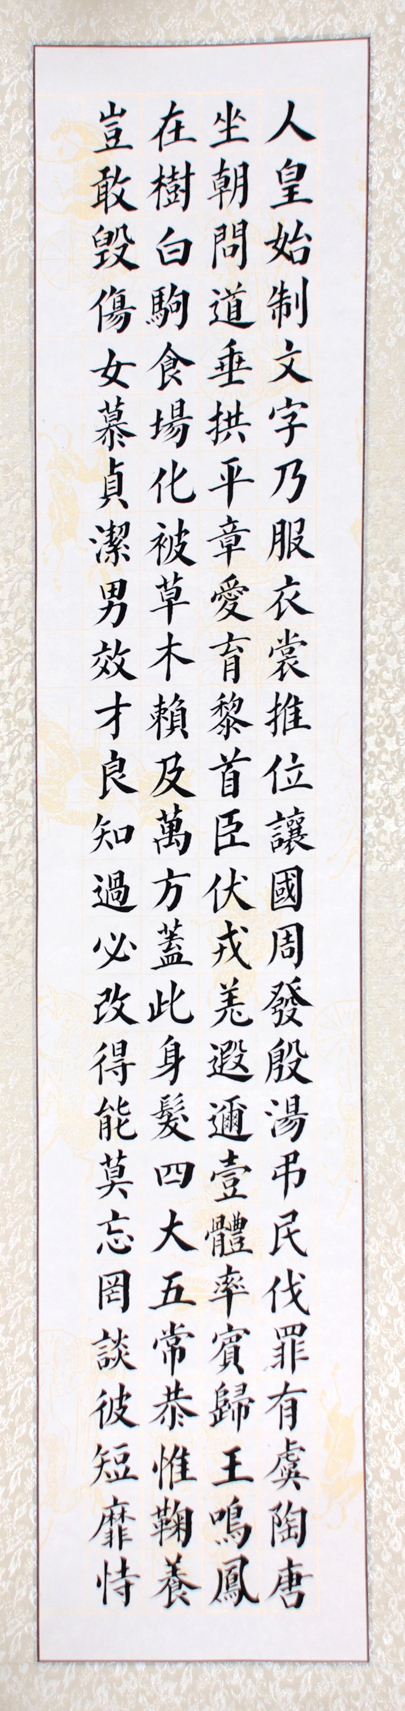 人皇始制文字乃服衣裳推位讓國周發殷湯弔民伐罪有虞陶唐
坐朝問道垂拱平章愛育黎首臣伏戎羌遐邇壹體率賓歸王鳴鳳
在樹白駒食場化被草木賴及萬方蓋此身髮四大五常恭惟鞠養
豈敢毀傷女慕貞潔男效才良知過必改得能莫忘罔談彼短靡恃